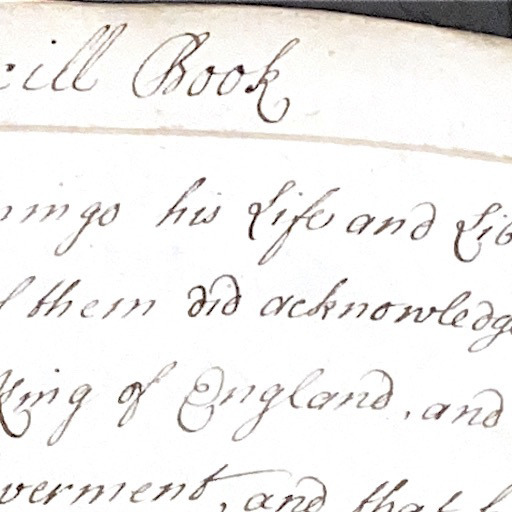 cill Book
mingo his Life and Lib
f them did acknowledge
King of England, and
verment, and that